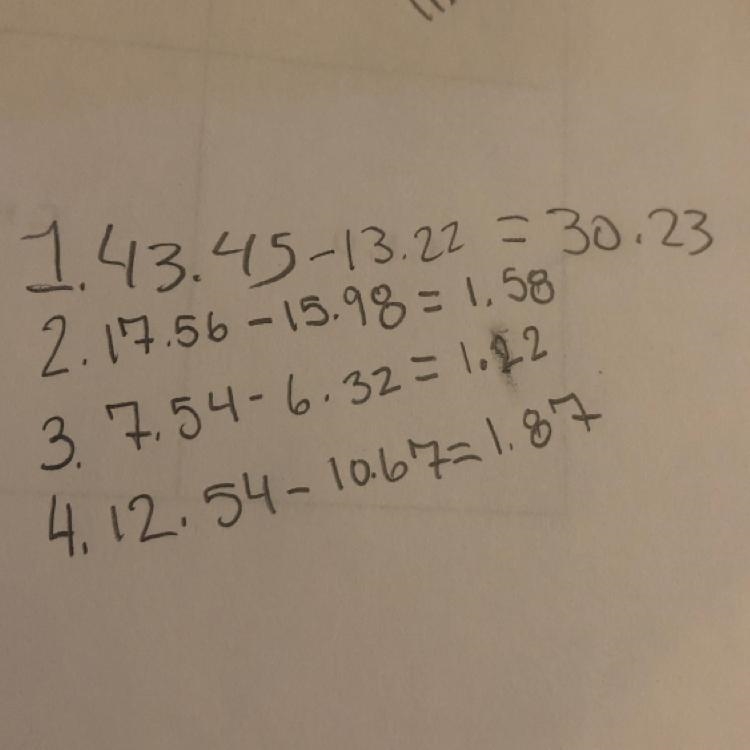 1. 43.45-13.22 = 30.23
2. 17.56-15.98=1.58
3. 7.54-6.32=1.22
4. 12.54-10.67=1.87